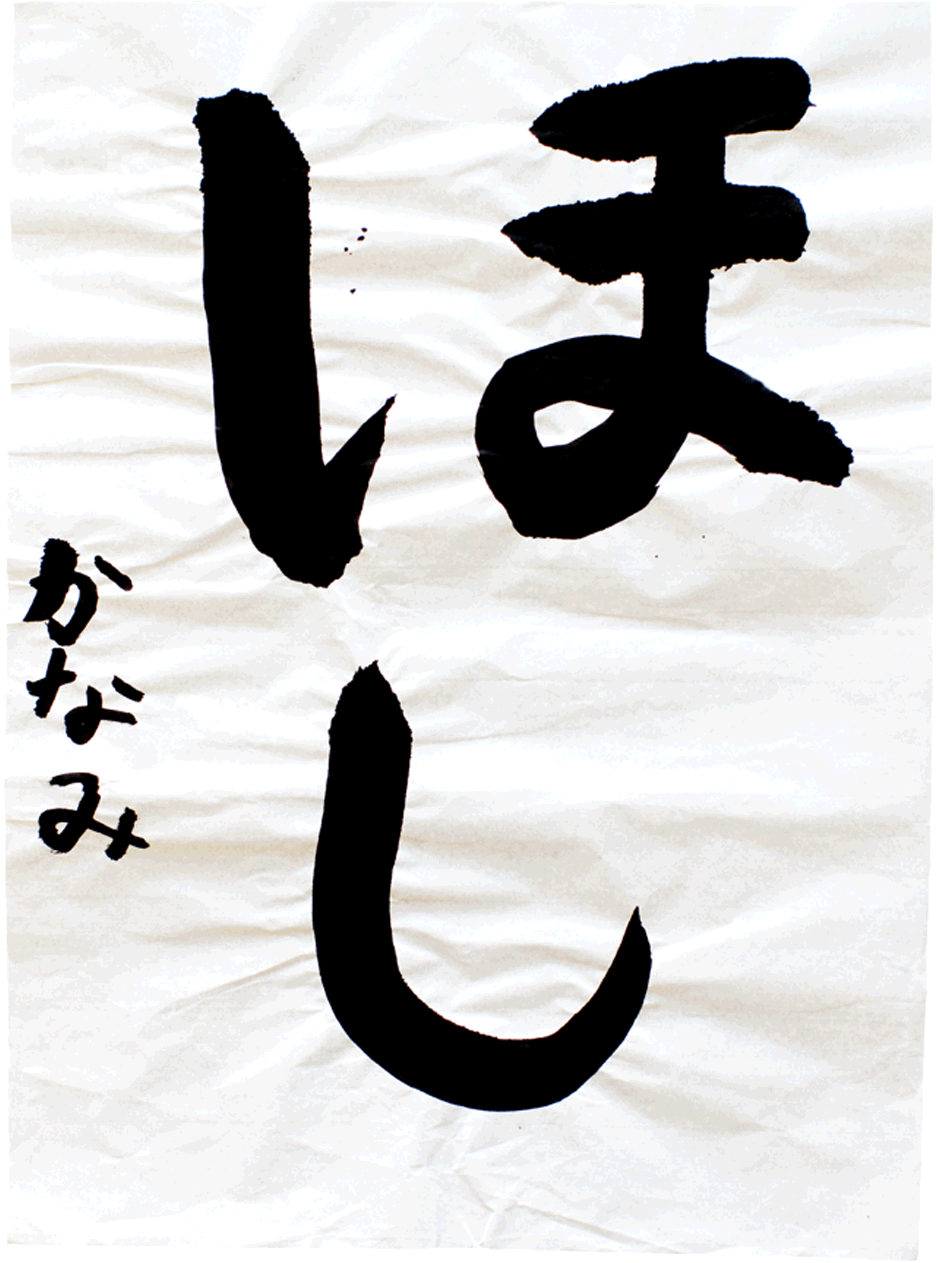 ほし
かなみ